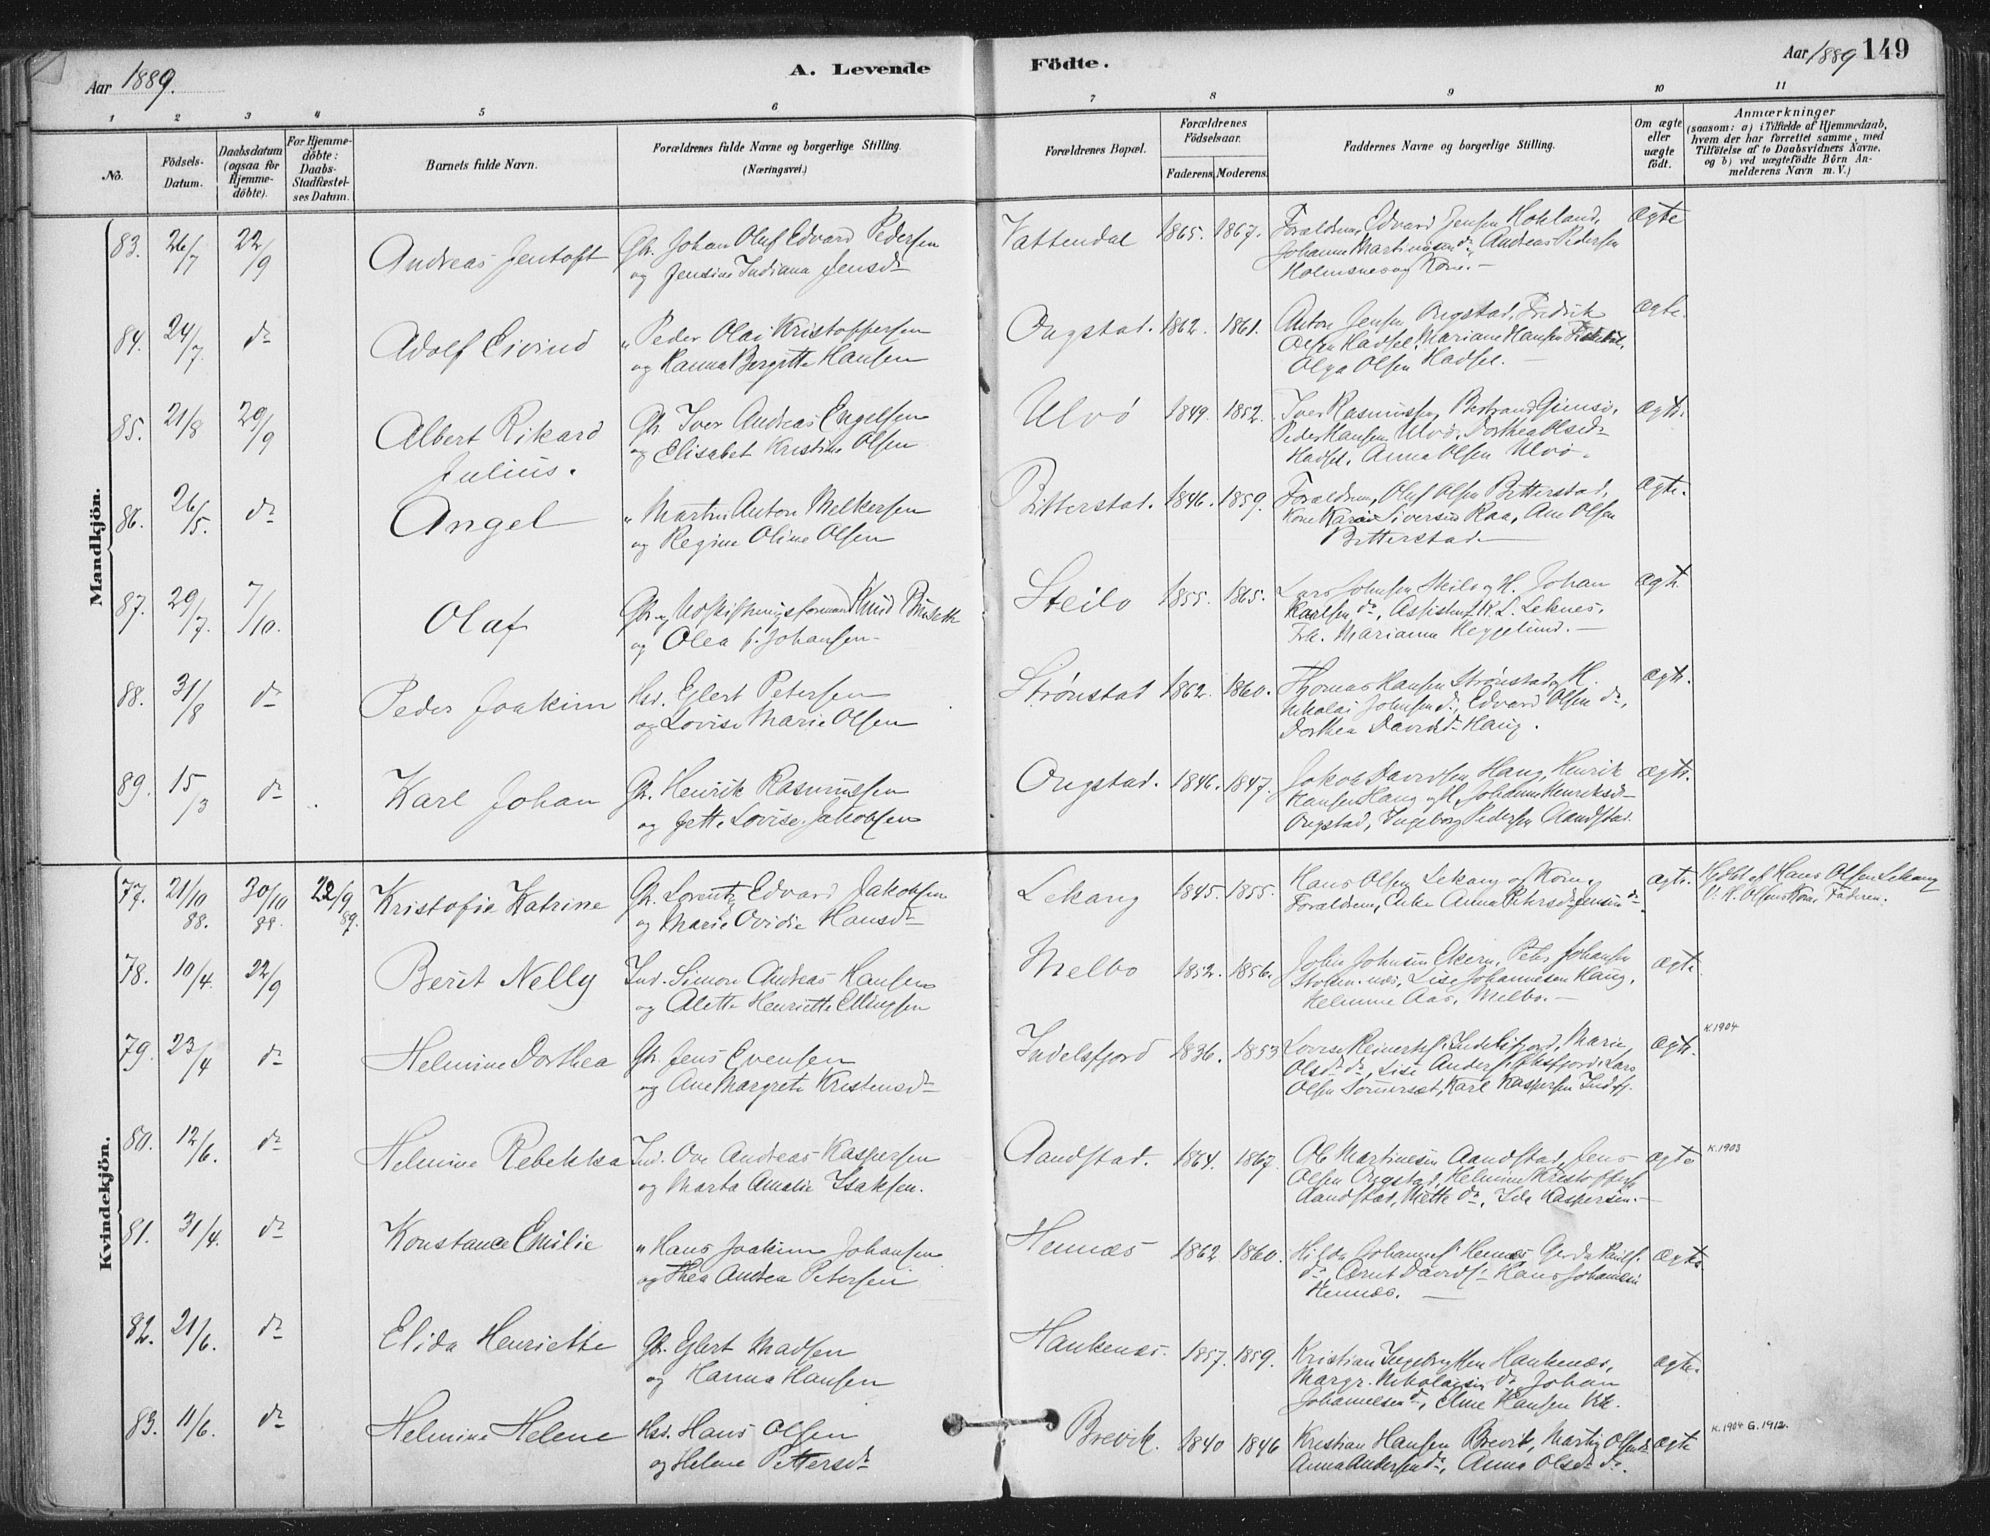 Aar 1889.
A. Levende
Födte.
Aar 1889
149
1 2 3 4 5 6 7 8 9 10 11
No.
Födsels-
Datum.
Daabsdatum
(ogsaa for
Hjemme-
döbte).
For Hjemme-
döbte:
Daabs-
Stadfæstel-
ses Datum.
Barnets fulde Navn.
Forældrenes fulde Navne og borgerlige Stilling.
(Næringsvei.)
Forældrenes Bopæl.
Forældrenes
Födselsaar.
Faderens. Moderens.
Faddernes Navne og borgerlige Stilling.
Om ægte
eller
uægte
födt.
Anmærkninger
(saasom: a) i Tilfælde af Hjemmedaab,
hvem der har forrettet samme, med
Tilföielse af to Daabsvidners Navne,
og b) ved uægtefödte Börn An-
melderens Navn m. V.)
Mandkjön.
83. 26/7 22/9 Andreas Jentoft Gbr. Johan Oluf Edvard Pedersen
og Jensine Indiana Jensdr
Vattendal 1865. 1867. Forældrene, Edvard Jensen Hokland,
Johanna Martinusen dr, Andreas Pedersen
Holmsnes og Kone.
ægte
84. 24/7. dr Adolf Eivind " Peder Olai Kristoffersen
og Hanna Bergitte Hansen
Ongstad. 1862. 1861. Anton Jensen Ongstad, Fredrik
Olsen Hadsel, Mariane Hansen
Olga Olsen Hadsel.
ægte.
85. 21/8 29/9 Albert Rikard
Julius.
Gbr. Iver Andreas Engelsen
og Elisabet Kristine Olsen
Ulvö 1849. 1852. Iver Rasmussen, Bertrand Gimsö,
Peder Hansen Ulvö, Dorthea Olsdr
Hadsel, Anna Olsen Ulvö.
ægte.
86. 26/5. dr Angel " Martin Anton Melkersen
og Regine Oline Olsen
Bitterstad. 1846. 1859. Forældrene, Oluf Olsen Bitterstad,
Kone Karen Siversen Raa, Ane Olsen
Bitterstad
ægte.
87. 29/7. 7/10. Olaf Gbr. og Udskiftningsformand Knud
og Olea J. Johansen
Steilo 1855. 1865. Lars Johnsen Steilo og H. Johan
Karlsen dr, Assistent K. L. Leknes,
Frk. Marianne Heggelund.
ægte
88. 31/8 dr Peder Joakim Hsd. Eglert Petersen
og Lovise Marie Olsen
Strønstad 1862. 1860. Thomas Hansen Strønstad og H.
Nikolai Johnsen dr, Edvard Olsen dr,
Dorthea Davidsdr Haug.
ægte.
89. 15/3 dr Karl Johan Gbr. Henrik Rasmussen
og Jette Lovise Jakobsen
Ongstad. 1846. 1847. Jakob Davidsen Haug, Henrik
Hansen Haug og H, Johanna Henriksdr
Ongstad, Ingeborg Pedersen Aandstad.
ægte.
Kvindekjön.
77. 21/10 88. 30/10 88. 22/9 89. Kristofia Katrine Gbr. Lorentz Edvard Jakobsen
og Marie Ovidie Hansdr
Lekang 1845. 1855. Hans Olsen Lekang og Kone,
Forældrene, Anna Petersdr
ægte. Hjdbt af Hans Olsen Lekang
V. H. Olsens Kone, Faderen.
78. 10/4. 22/9 Berit Nelly Ind. Simon Andreas Hansen
og Alette Henriette Ellingsen
Melbo 1852. 1856. John Johnsen Ekern, Peter Johansen
Stokmarnes, Lise Johannesen Haug,
Helmine Aas, Melbo.
ægte
79. 23/4 dr Helmine Dorthea Gbr. Jens Evensen
og Ane Margrete Kristensdr
Indelsfjord 1836. 1853 Lovise Reinerts. Indelsfjord, Marie
Olsdr dr, Lise Anders. Oksfjord, Lars
Olsen Sommerset, Karl Kaspersen Indfj.
ægte. K. 1904
80. 12/6. dr Helmine Rebekka Ind. Ove Andreas Kaspersen
og Marta Amalie Isaksen.
Aandstad. 1864. 1867. Ole Martinesen Aandstad, Jens
Olsen Ongstad, Helmine Kristoffersen
Aandstad, Mette dr, Ida Kaspersen.
ægte K. 1903
81. 31/4. dr Konstance Emilie " Hans Joakim Johansen
og Thea Andrea Petersen
Hennæs 1862 1860. Hilda Johannes. Hennæs Gerda Pauls.
dr, Arnt Davids. Hans Johansen
Hennæs.
ægte
82. 21/6. dr Elida Henriette Gbr. Eglert Madsen
og Hanna Hansen
Haukenæs. 1857. 1859. Kristian Ingebrigtsen Haukenæs,
Margr. Nikolaisen dr, Johan
Johannesen dr, Ane Hansen Vik.
ægte.
83. 11/6. dr Helmine Helene Hsd. Hans Olsen
og Helene Pettersdr
Brevik. 1840 1846 Kristian Hansen Brevik, Martin Olsen dr
Anna Andersen dr, Anna Olsdr dr.
ægte K. 1904 G. 1912.